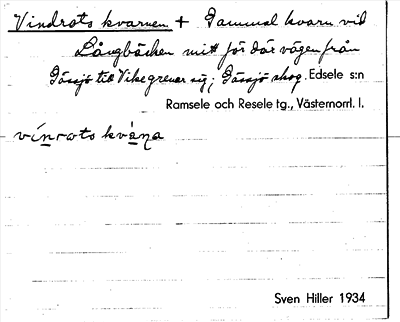 Vindrots kvarnen + Gammal kvarn vid
Långbäcken mitt för där vägen från
Gåssjö till Vike grenar sig; Gåssjö skog. Edsele s:n
Ramsele och Resele tg., Västernorrl. l.
vínrots kvàṇa
Sven Hiller 1934